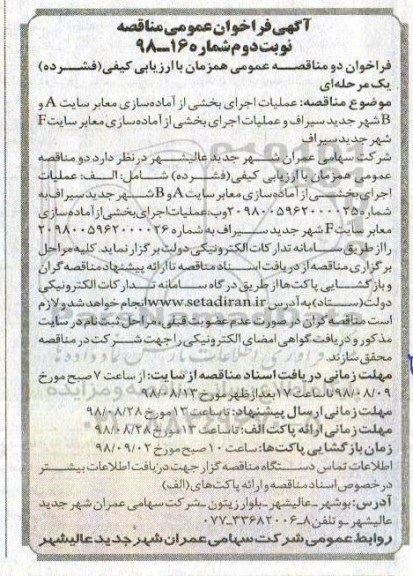 آگهی فراخوان عمومی مناقصه
نوبت دوم شماره ۱۶-۹۸
فراخوان دو مناقصه عمومی همزمان با ارزیابی کیفی(فشرده)
یک مرحله‌ای
موضوع مناقصه: عملیات اجرای بخشی از آماده‌سازی معابر سایت A و
B شهر جدید سیراف و عملیات اجرای بخشی از آماده‌سازی معابر سایت F
شهر جدید سیراف
شرکت سهامی عمران شهر جدید عالیشهر در نظر دارد دو مناقصه
عمومی همزمان با ارزیابی کیفی (فشرده) شامل: الف: عملیات
اجرای بخشی از آماده‌سازی معابر سایت A و B شهر جدید سیراف به
شماره ۲۰۹۸۰۰۵۹۶۲۰۰۰۰۲۵ و ب: عملیات اجرای بخشی از آماده‌سازی
معابر سایت F شهر جدید سیراف به شماره ۲۰۹۸۰۰۵۹۶۲۰۰۰۰۲۶
را از طریق سامانه تدارکات الکترونیکی دولت برگزار نماید. کلیه مراحل
برگزاری مناقصه از دریافت اسناد مناقصه تا ارائه پیشنهاد مناقصه گران
و بازگشایی پاکت‌ها از طریق درگاه سامانه تدارکات الکترونیکی
دولت (ستاد) به آدرس www.setadiran.ir انجام خواهد شد و لازم
است مناقصه گران در صورت عدم عضویت قبلی، مراحل ثبت نام در سایت
مذکور و دریافت گواهی امضای الکترونیکی را جهت شرکت در مناقصه
محقق سازند.
مهلت زمانی دریافت اسناد مناقصه از سایت: از ساعت ۷ صبح مورخ
۹۸/۰۸/۰۹ تا ساعت ۱۷ بعد از ظهر مورخ ۹۸/۰۸/۱۳
مهلت زمانی ارسال پیشنهاد: تا ساعت ۱۳ مورخ ۹۸/۰۸/۲۸
مهلت زمانی ارائه پاکت الف: تا ساعت ۱۳ مورخ ۹۸/۰۸/۲۸
زمان بازگشایی پاکت‌ها: ساعت ۱۰ صبح مورخ ۹۸/۰۹/۰۲
اطلاعات تماس دستگاه مناقصه گزار جهت دریافت اطلاعات بیشتر
در خصوص اسناد مناقصه و ارائه پاکت‌های (الف)
آدرس: بوشهر - عالیشهر - بلوار زیتون - شرکت سهامی عمران شهر جدید
عالیشهر - و تلفن ۸-۳۳۶۸۲۰۰۶-۰۷۷
روابط عمومی شرکت سهامی عمران شهر جدید عالیشهر